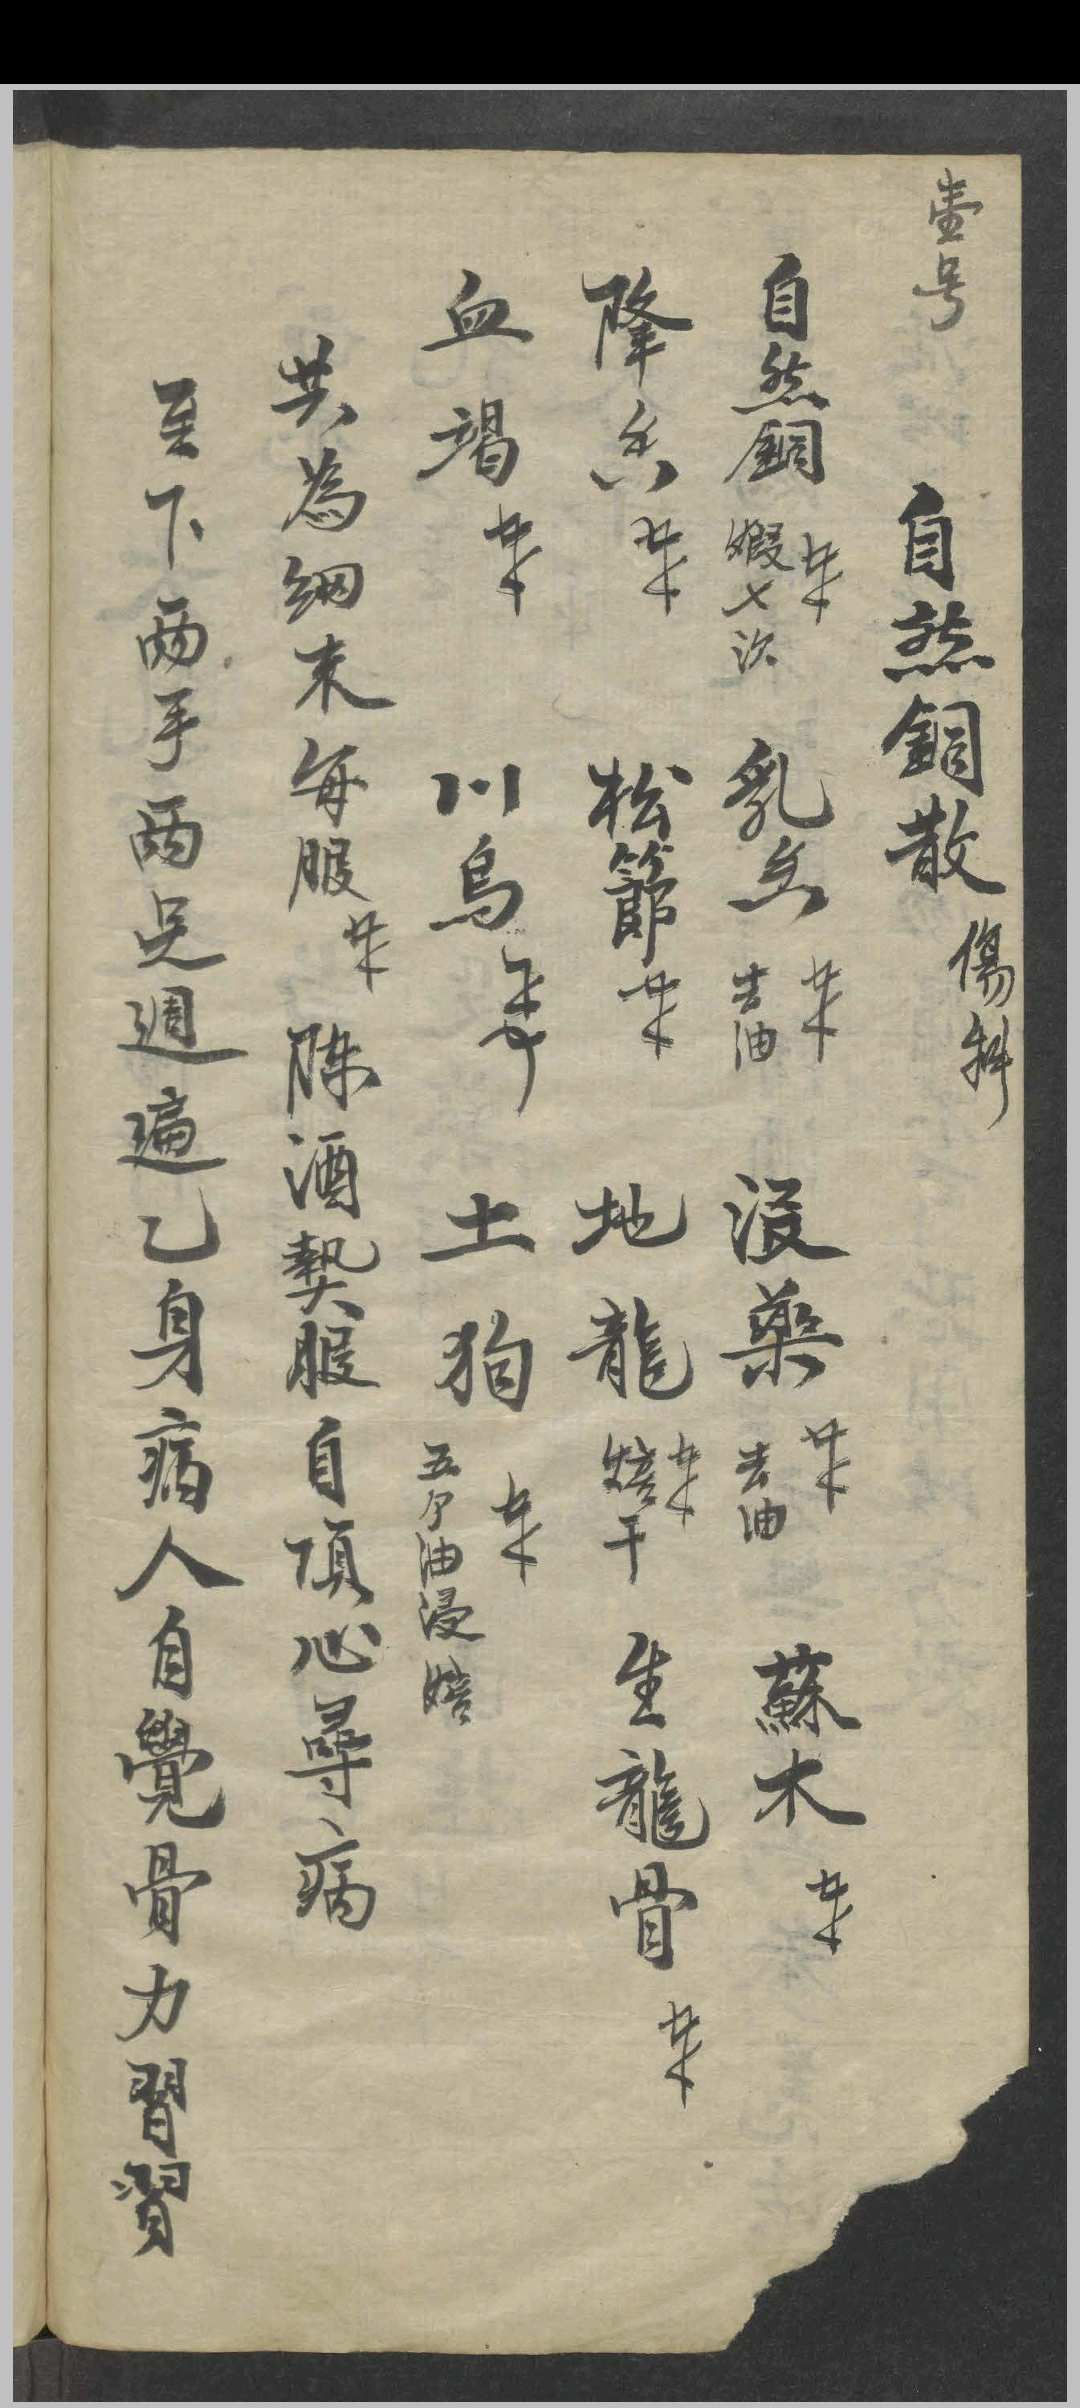 壹号
自然銅散 傷科
自然銅 煅七次 乳香 去油 沒藥 去油 蘇木
降香 松節 地龍 焙干 生龍骨
血竭 川烏 土狗 五个油浸焙
共為細末每服 陳酒熱服自頂心尋病
至下两手两足週遍乙身病人自覺骨力習習